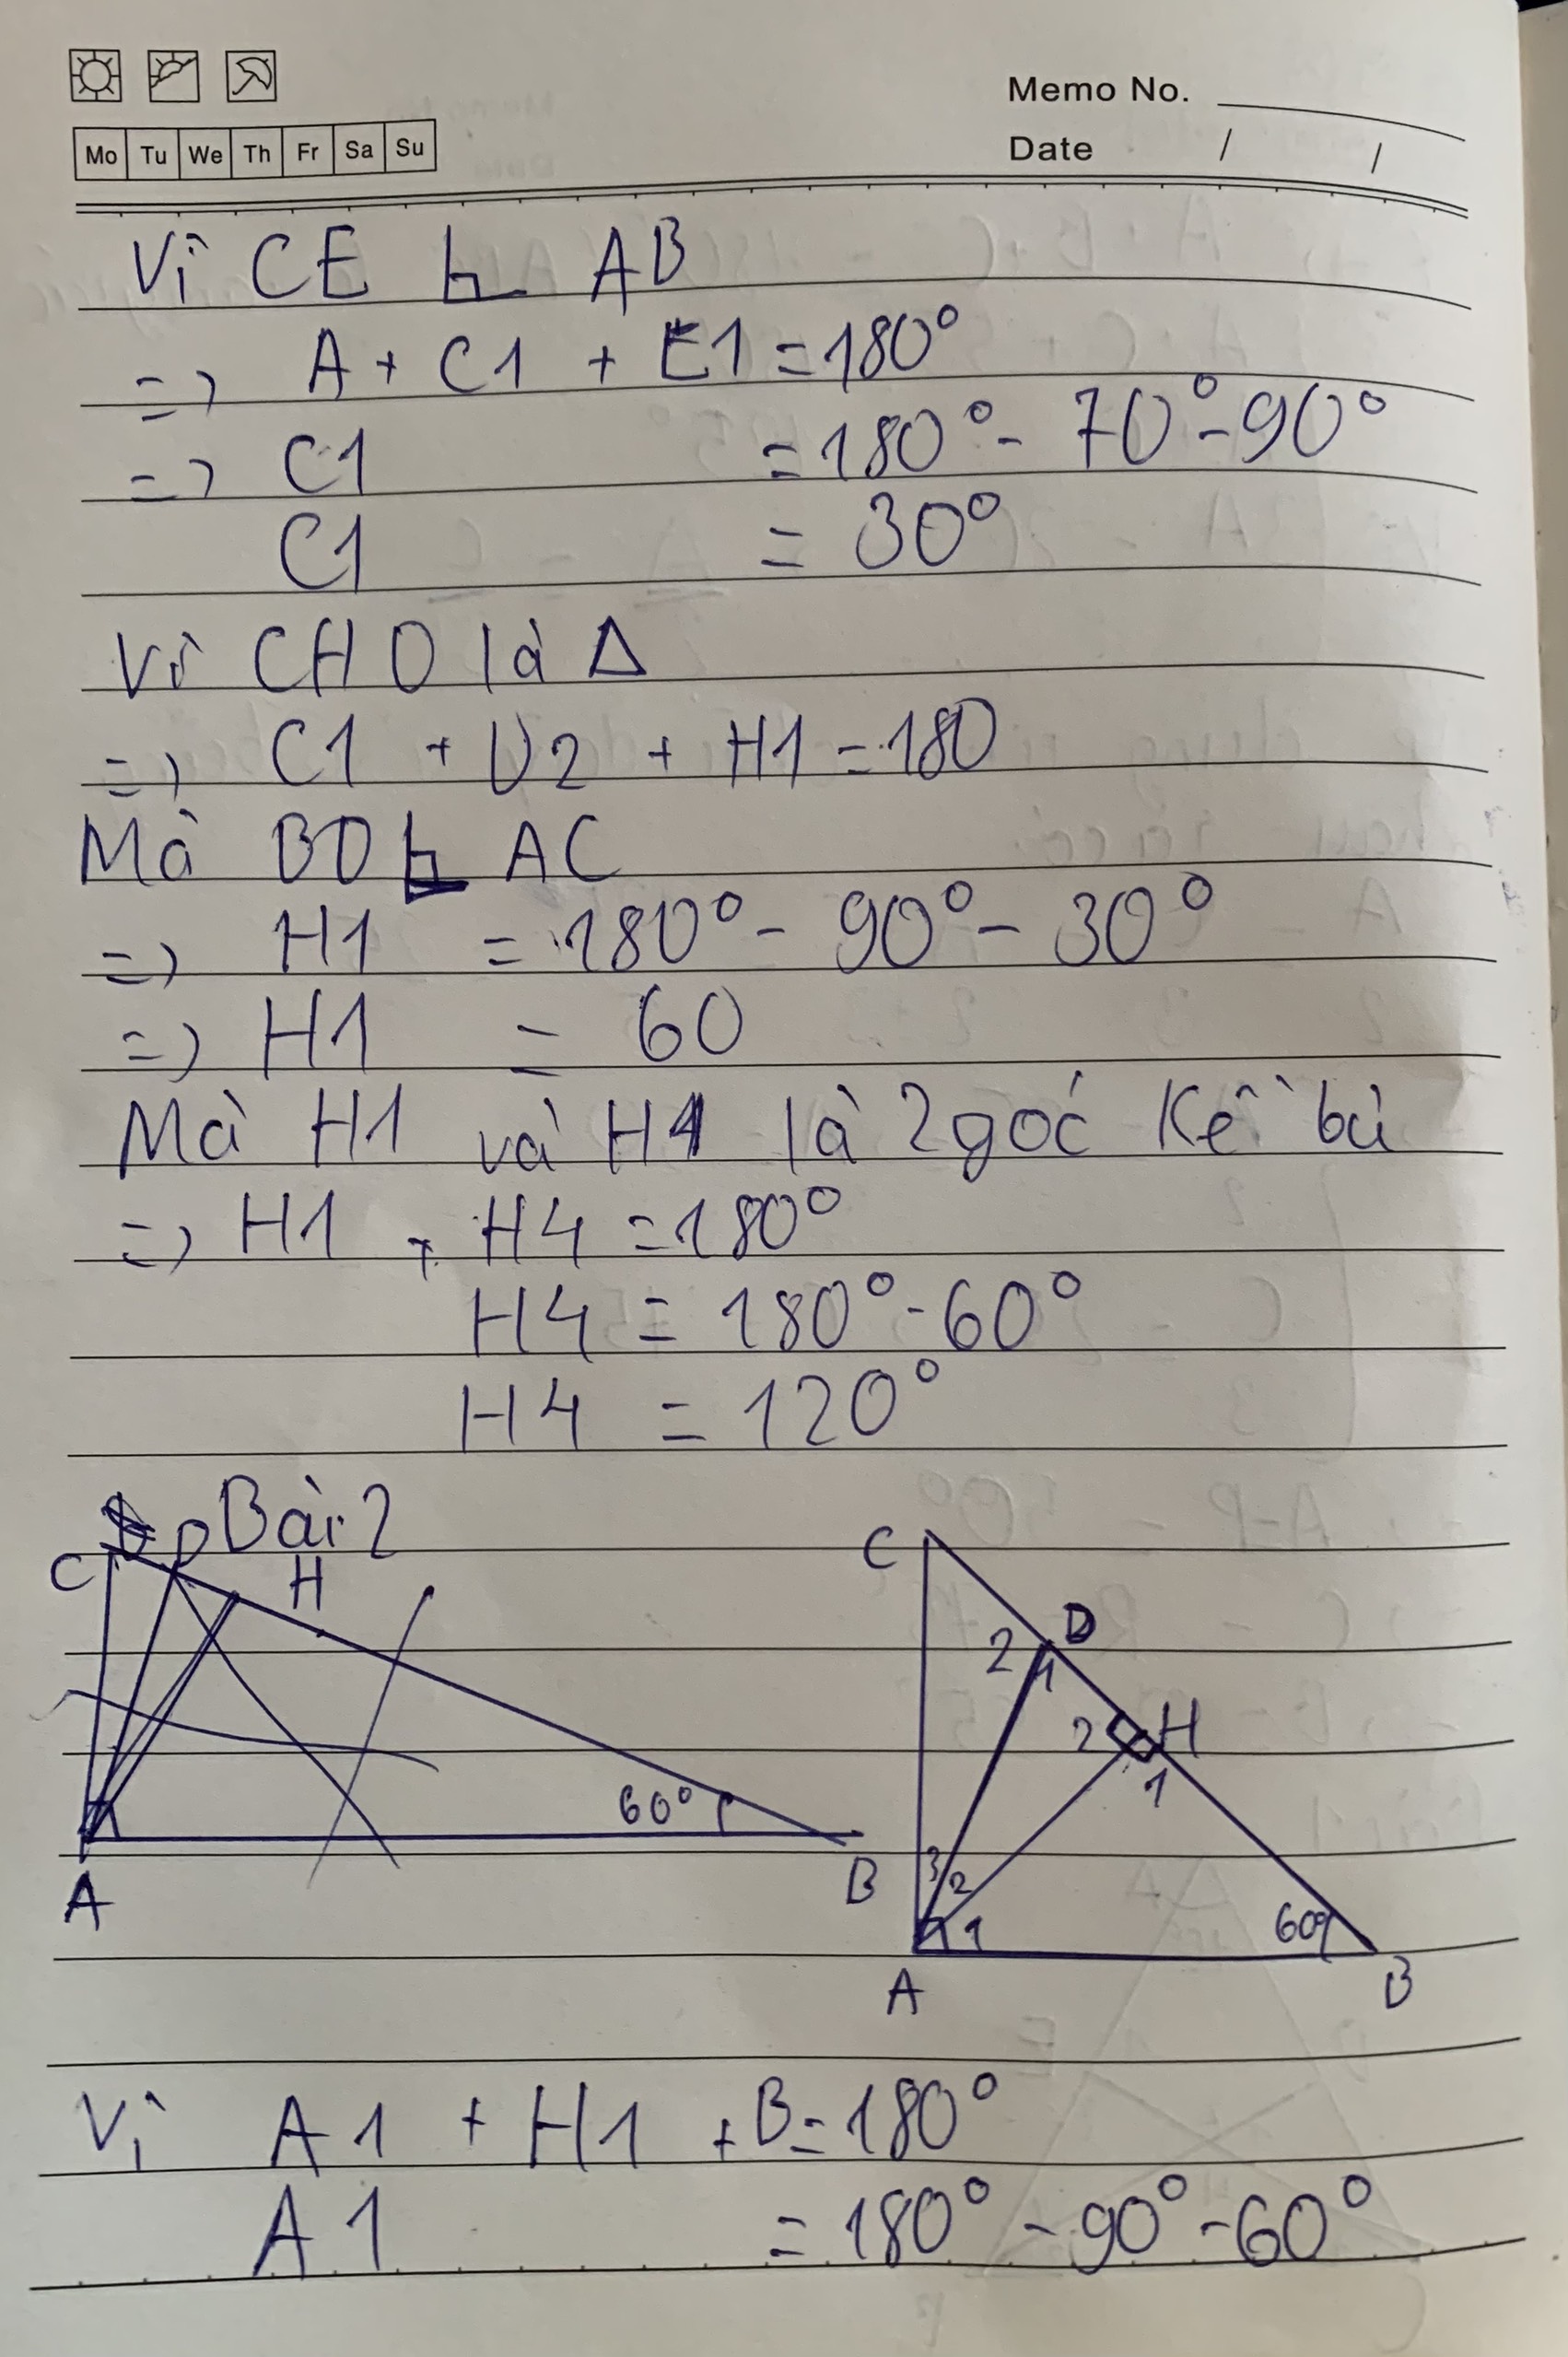 Memo No.
Mo Tu We Th Fr Sa Su
Date / /
Vì CE ⊥ AB
=> A + C1 + E1 = 180°
=> C1 = 180° - 70° - 90°
C1 = 30°
Vì CHD là Δ
=> C1 + D2 + H1 = 180
Mà BD ⊥ AC
=> H1 = 180° - 90° - 30°
=> H1 = 60
Mà H1 và H4 là 2 góc kề bù
=> H1 + H4 = 180°
H4 = 180° - 60°
H4 = 120°
Bài 2
C D H
60°
A B
C
2 D
1
2 H
1
3 2
1 60°
A B
Vì A1 + H1 + B = 180°
A1 = 180° - 90° - 60°